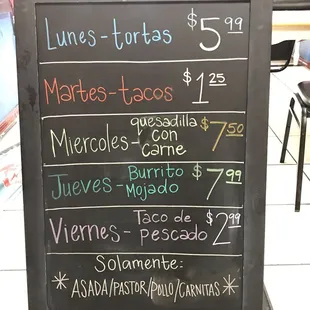 Lunes-tortas $5.99
Martes-tacos $1.25
Miercoles-quesadilla con carne $7.50
Jueves-Burrito Mojado $7.99
Viernes-Taco de pescado $2.99
Solamente:
*ASADA/PASTOR/POLLO/CARNITAS*